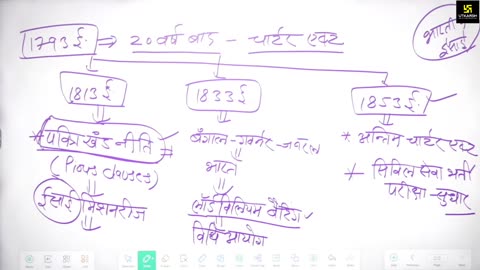 1793ई. → 20 वर्ष बाद - चार्टर एक्ट
भारतीय
ईसाई
UTKARSH
1813ई
1833ई
1853ई.
* पवित्र खंड नीति
(Pious clauses)
ईसाई मिशनरीज
बंगाल - गवर्नर - जनरल
भारत
लॉर्ड विलियम बैटिंग
विधि आयोग
* अन्तिम चार्टर एक्ट
* सिविल सेवा भर्ती
परीक्षा - सुधार